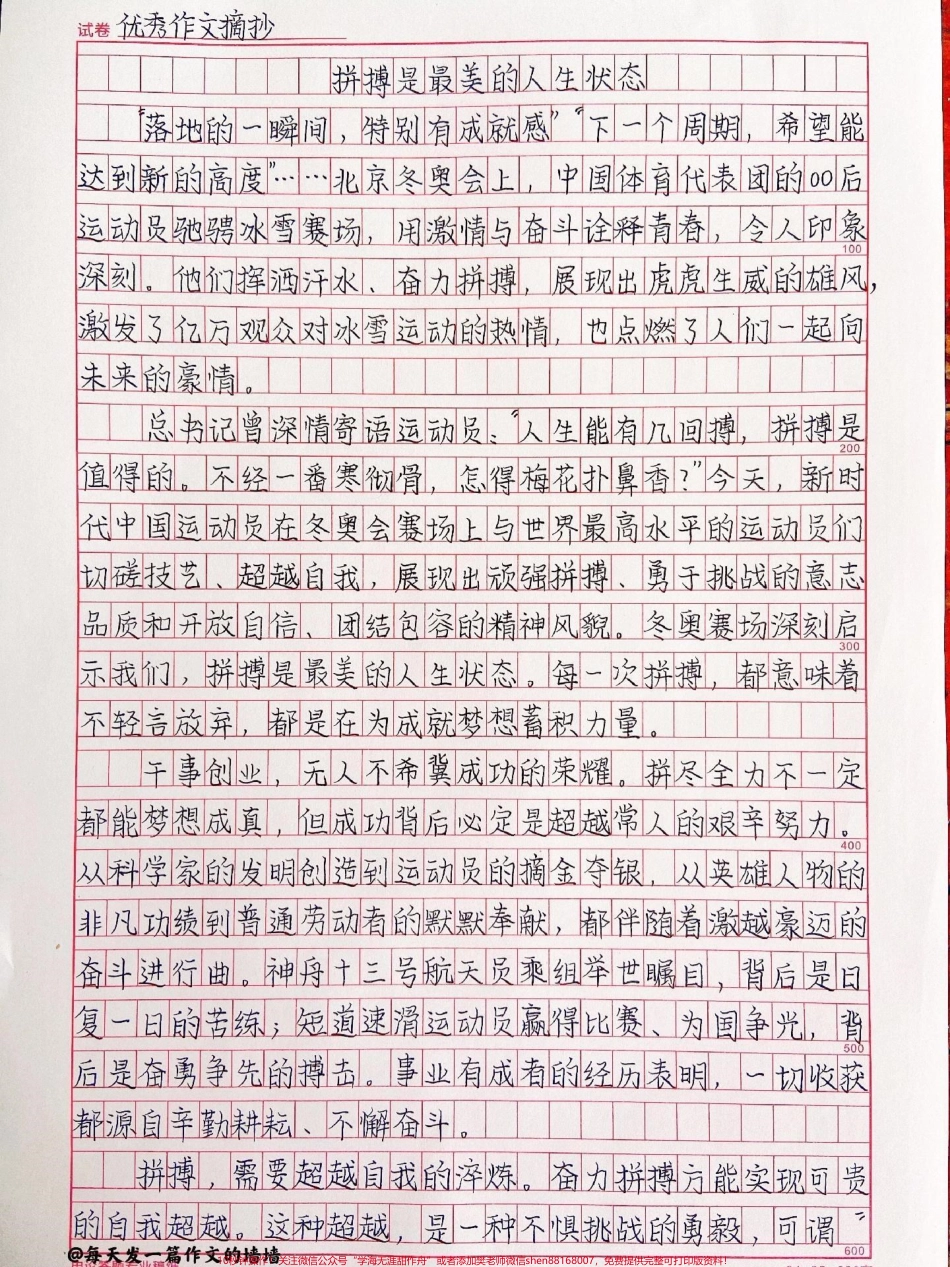 试卷 优秀作文摘抄
拼搏是最美的人生状态
“落地的一瞬间，特别有成就感”“下一个周期，希望能
达到新的高度”……北京冬奥会上，中国体育代表团的00后
运动员驰骋冰雪赛场，用激情与奋斗诠释青春，令人印象
100
深刻。他们挥洒汗水、奋力拼搏，展现出虎虎生威的雄风，
激发了亿万观众对冰雪运动的热情，也点燃了人们一起向
未来的豪情。
总书记曾深情寄语运动员：“人生能有几回搏，拼搏是
200
值得的。不经一番寒彻骨，怎得梅花扑鼻香？”今天，新时
代中国运动员在冬奥会赛场上与世界最高水平的运动员们
切磋技艺、超越自我，展现出顽强拼搏、勇于挑战的意志
品质和开放自信、团结包容的精神风貌。冬奥赛场深刻启
300
示我们，拼搏是最美的人生状态。每一次拼搏，都意味着
不轻言放弃，都是在为成就梦想蓄积力量。
干事创业，无人不希冀成功的荣耀。拼尽全力不一定
都能梦想成真，但成功背后必定是超越常人的艰辛努力。
400
从科学家的发明创造到运动员的摘金夺银，从英雄人物的
非凡功绩到普通劳动者的默默奉献，都伴随着激越豪迈的
奋斗进行曲。神舟十三号航天员乘组举世瞩目，背后是日
复一日的苦练；短道速滑运动员赢得比赛、为国争光，背
500
后是奋勇争先的搏击。事业有成者的经历表明，一切收获
都源自辛勤耕耘、不懈奋斗。
拼搏，需要超越自我的淬炼。奋力拼搏方能实现可贵
的自我超越。这种超越，是一种不惧挑战的勇毅，可谓“
600
@每天发一篇作文的墙墙
关注微信公众号“学海无涯甜作舟”或者添加昊老师微信shen88168007，免费提供完整可打印版资料！